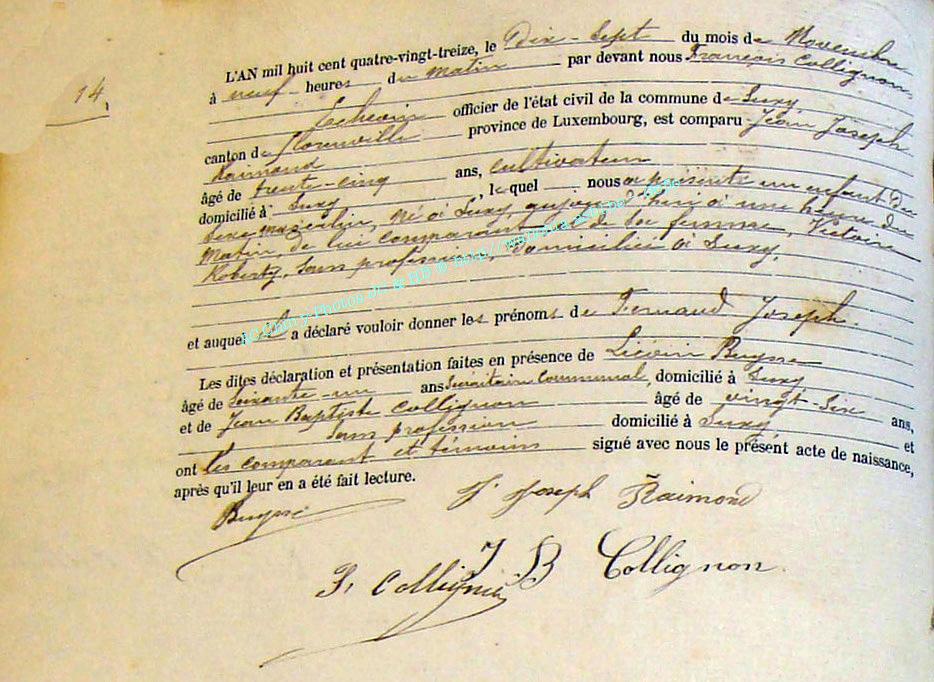 14.
L'AN mil huit cent quatre-vingt-treize, le Dix-Sept du mois de Novembre
à neuf heures du Matin par devant nous François Collignon,
Echevin officier de l'état civil de la commune de Suxy,
canton de Florenville province de Luxembourg, est comparu Jean Joseph
Raimond
âgé de trente-cinq ans, cultivateur
domicilié à Suxy, lequel nous a présenté un enfant du
sexe masculin, né à Suxy, aujourd'hui à une heure du
Matin, de lui comparant et de sa femme, Victoire
Roberty, sans profession, domiciliée à Suxy,
et auquel il a déclaré vouloir donner les prénoms de Fernand Joseph.
Les dites déclaration et présentation faites en présence de Buysse
âgé de soixante-un ans Secrétaire Communal, domicilié à Suxy
et de Jean Baptiste Collignon âgé de vingt-six ans,
sans profession domicilié à Suxy et
ont les comparant et témoins signé avec nous le présent acte de naissance,
après qu'il leur en a été fait lecture.
Buysse J. Joseph Raimond
J B Collignon.
F. Collignon